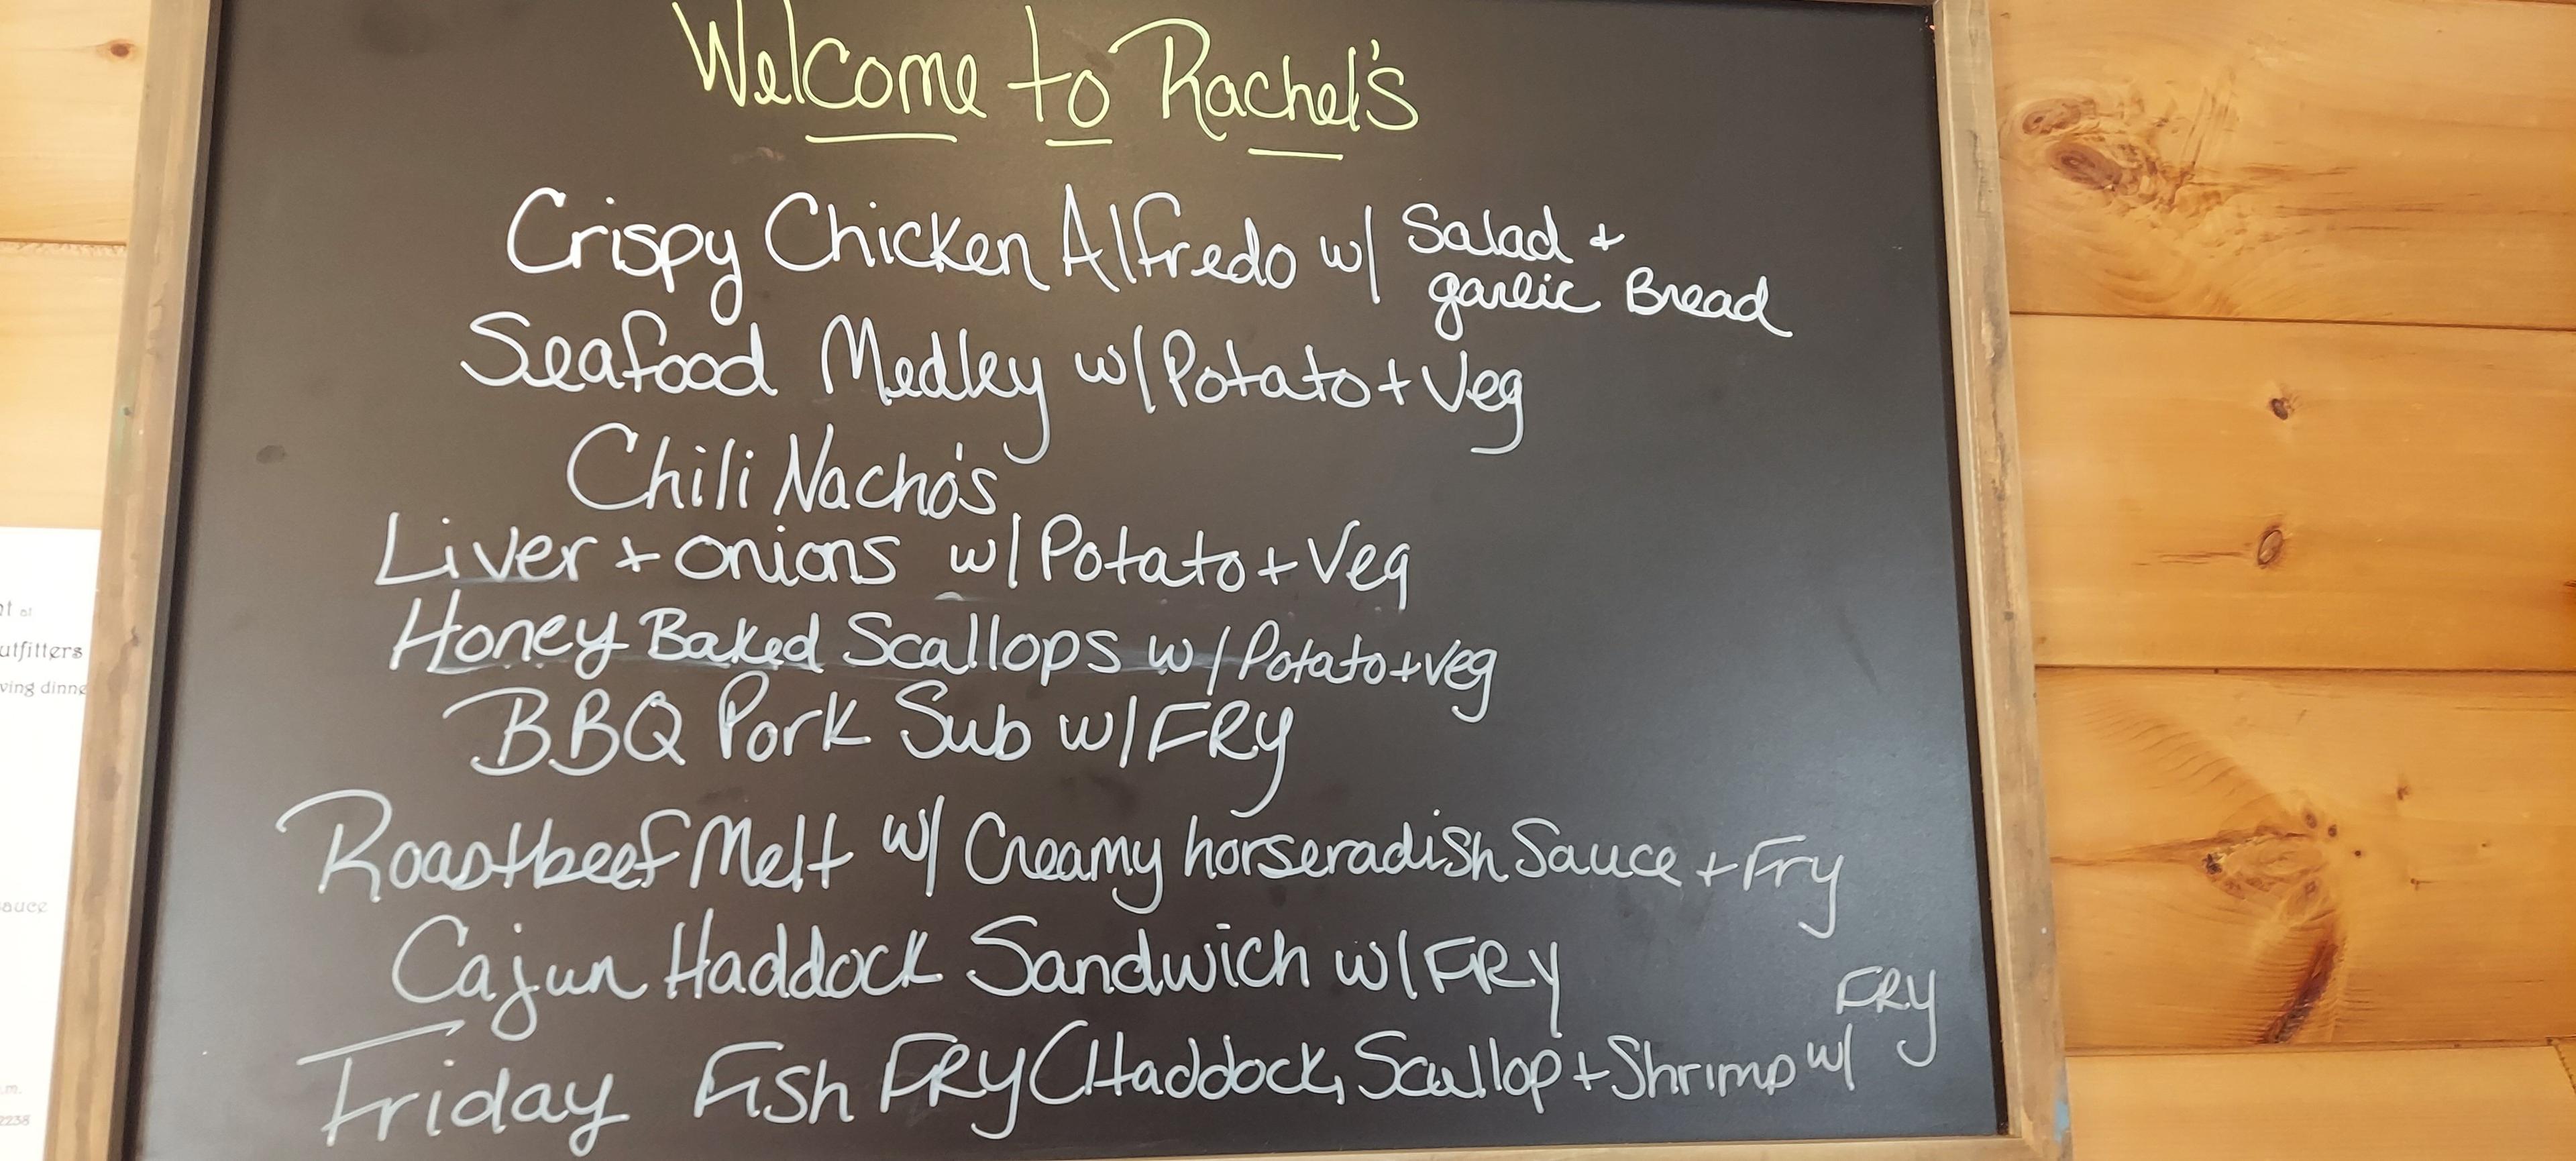 Welcome to Rachel's
Crispy Chicken Alfredo w/ Salad +
garlic Bread
Seafood Medley w/ Potato + Veg
Chili Nacho's
Liver + onions w/ Potato + Veg
Honey Baked Scallops w/ Potato + veg
BBQ Pork Sub w/ FRY
Roastbeef Melt w/ Creamy horseradish Sauce + Fry
Cajun Haddock Sandwich w/ FRY
Friday Fish FRY (Haddock, Scallop + Shrimp w/ FRY
utfitters
ving dinne
auce
.m.
2238